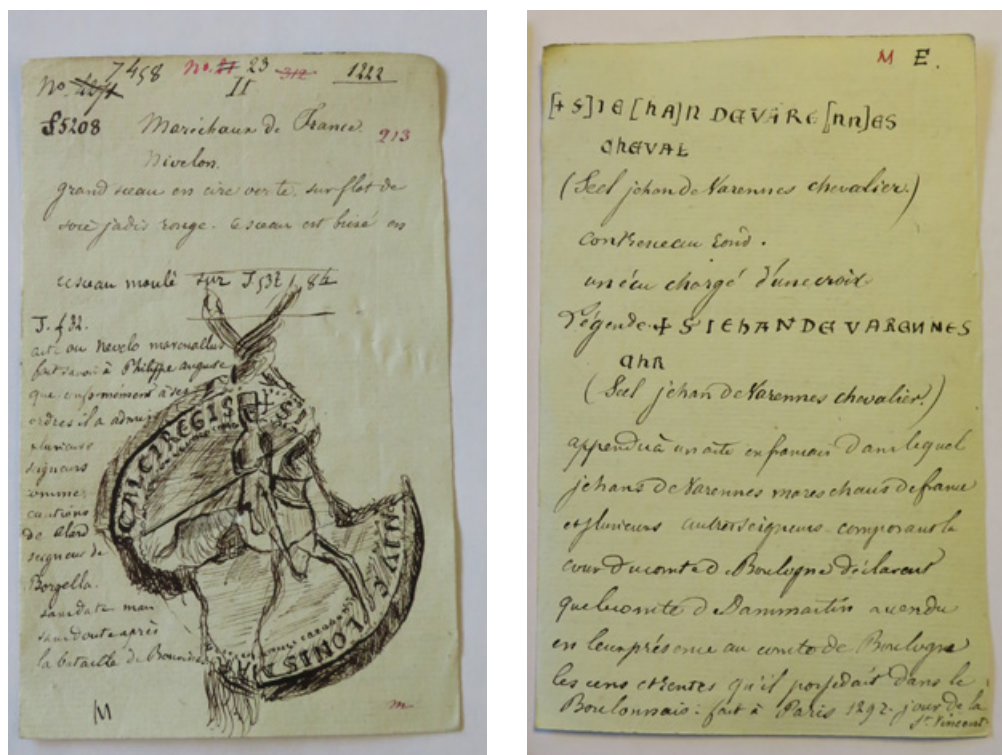 7458 No. 21 23 312 1222
No.
II
§5208 Maréchaux de France. 913
Nivelon.
grand sceau en cire verte. sur flot de
soie jadis rouge. ce sceau est brisé en
ce sceau moulé sur J 532 1 8
J. 532.
acte ou Nevelo marescallus
fait savoir à Philippe auguste
que conformément à ses
ordres il a admis
plusieurs
seigneurs
comme
cautions
de
seigneur de
Borzella.
sans date mais
sans doute après
la bataille de Bouvines
CALCI REGIS + SI
M
m
M E.
[+ S] I E [hA] N DE VARE [nn] ES
ChEVAL
(Seel jehan de Varennes chevalier.)
contresceau rond.
un écu chargé d'une croix
Légende. + S IEHAN DE VARENNES
ChR
(Seel jehan de Varennes chevalier.)
appendu à un acte en francais dans lequel
jehans de Varennes mareschaus de france
et plusieurs autres seigneurs composant la
cour du comte de Boulogne déclarent
que le comte de Dammartin a vendu
en leur présence au comte de Boulogne
les cens et rentes qu'il possédait dans le
Boulonnais: fait à Paris 1292. jour de la
St. Vincent